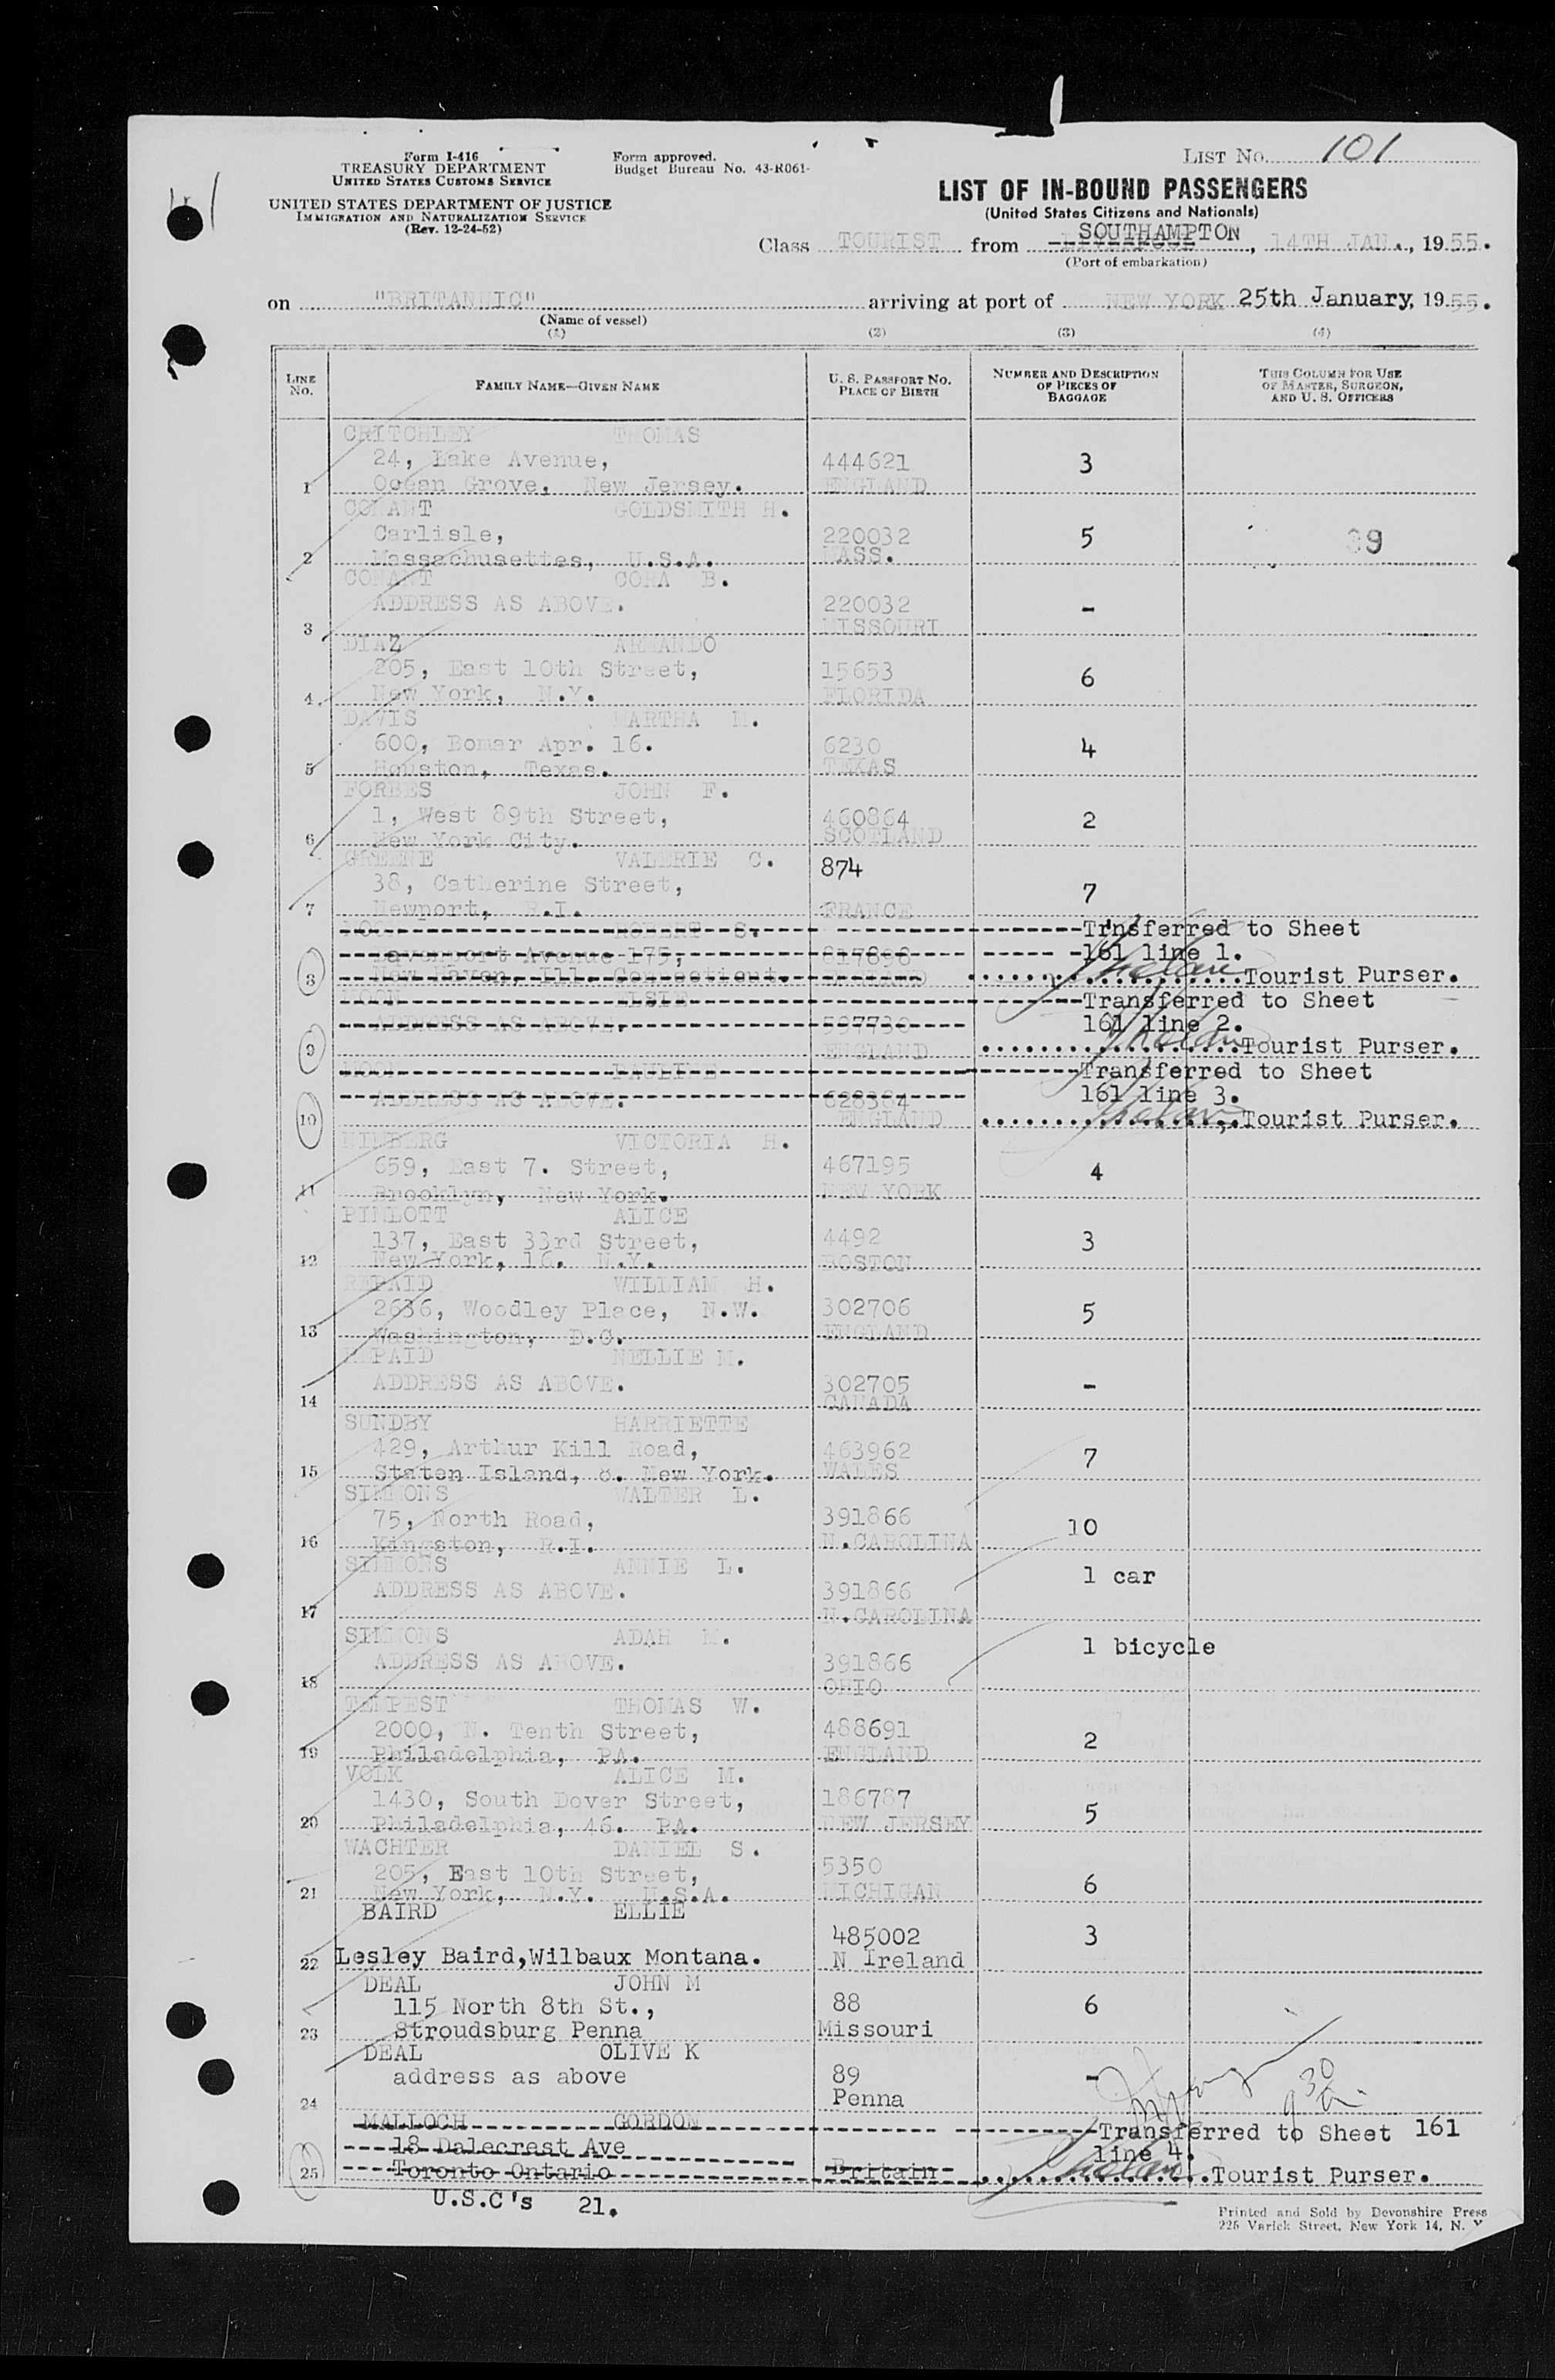 Form I-416
TREASURY DEPARTMENT
UNITED STATES CUSTOMS SERVICE
UNITED STATES DEPARTMENT OF JUSTICE
IMMIGRATION AND NATURALIZATION SERVICE
(Rev. 12-24-52)
Form approved.
Budget Bureau No. 43-R061-
LIST No. 101
LIST OF IN-BOUND PASSENGERS
(United States Citizens and Nationals)
Class TOURIST from SOUTHAMPTON, 14TH JAN., 1955.
(Port of embarkation)
on "BRITANNIC" arriving at port of NEW YORK 25th January, 1955.
(Name of vessel)
(1) (2) (3) (4)
LINE No. FAMILY NAME—GIVEN NAME U. S. PASSPORT No. PLACE OF BIRTH NUMBER AND DESCRIPTION OF PIECES OF BAGGAGE THIS COLUMN FOR USE OF MASTER, SURGEON, AND U. S. OFFICERS
CRITCHLEY THOMAS
24, Lake Avenue, 444621 3
1 Ocean Grove, New Jersey. ENGLAND
CONANT GOLDSMITH H.
Carlisle, 220032 5 39
2 Massachusettes, U.S.A. MASS.
CONANT CORA B.
ADDRESS AS ABOVE. 220032 -
3 MISSOURI
DIAZ ARMANDO
205, East 10th Street, 15653 6
4 New York, N.Y. FLORIDA
DAVIS MARTHA M.
600, Bomar Apr. 16. 6230 4
5 Houston, Texas. TEXAS
FORBES JOHN F.
1, West 89th Street, 460864 2
6 New York City. SCOTLAND
GREENE VALERIE C. 874
38, Catherine Street, 7
7 Newport, R.I. FRANCE
MOON ROBERT S. Trnsferred to Sheet
Davenport Avenue 175, 817898 161 line 1.
8 New Haven, Ill. Connecticut. ENGLAND Tourist Purser.
MOON ELSIE Transferred to Sheet
ADDRESS AS ABOVE. 597730 161 line 2.
9 ENGLAND Tourist Purser.
MOON PAULINE Transferred to Sheet
ADDRESS AS ABOVE. 628384 161 line 3.
10 ENGLAND Tourist Purser.
NINBERG VICTORIA H.
659, East 7. Street, 467195 4
11 Brooklyn, New York. NEW YORK
PIMLOTT ALICE
137, East 33rd Street, 4492 3
12 New York, 16. N.Y. BOSTON
REPAID WILLIAM H.
2636, Woodley Place, N.W. 302706 5
13 Washington, D.C. ENGLAND
REPAID NELLIE M.
ADDRESS AS ABOVE. 302705 -
14 CANADA
SUNDBY HARRIETTE
429, Arthur Kill Road, 463962 7
15 Staten Island, 8. New York. WALES
SIMMONS WALTER L.
75, North Road, 391866 10
16 Kingston, R.I. N.CAROLINA
SIMMONS ANNIE L.
ADDRESS AS ABOVE. 391866 1 car
17 N.CAROLINA
SIMMONS ADAH M.
ADDRESS AS ABOVE. 391866 1 bicycle
18 OHIO
TEMPEST THOMAS W.
2000, N. Tenth Street, 488691 2
19 Philadelphia, PA. ENGLAND
VOLK ALICE M.
1430, South Dover Street, 186787 5
20 Philadelphia, 46. PA. NEW JERSEY
WACHTER DANIEL S.
205, East 10th Street, 5350 6
21 New York, N.Y. U.S.A. MICHIGAN
BAIRD ELLIE
485002 3
22 Lesley Baird,Wilbaux Montana. N Ireland
DEAL JOHN M
115 North 8th St., 88 6
23 Stroudsburg Penna Missouri
DEAL OLIVE K
address as above 89 -
24 Penna
MALLOCH GORDON Transferred to Sheet 161
18 Dalecrest Ave line 4.
25 Toronto Ontario Britain Tourist Purser.
U.S.C's 21.
Printed and Sold by Devonshire Press
225 Varick Street, New York 14, N. Y